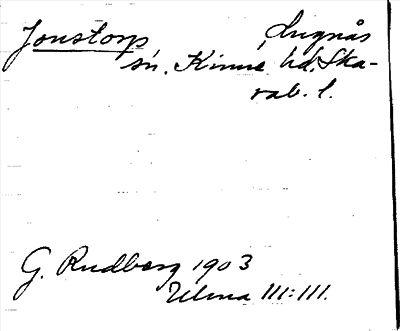 Jonstorp Lugnås
sn. Kinne hd. Ska-
rab. l.
G. Rudberg 1903
Uelma III:III.